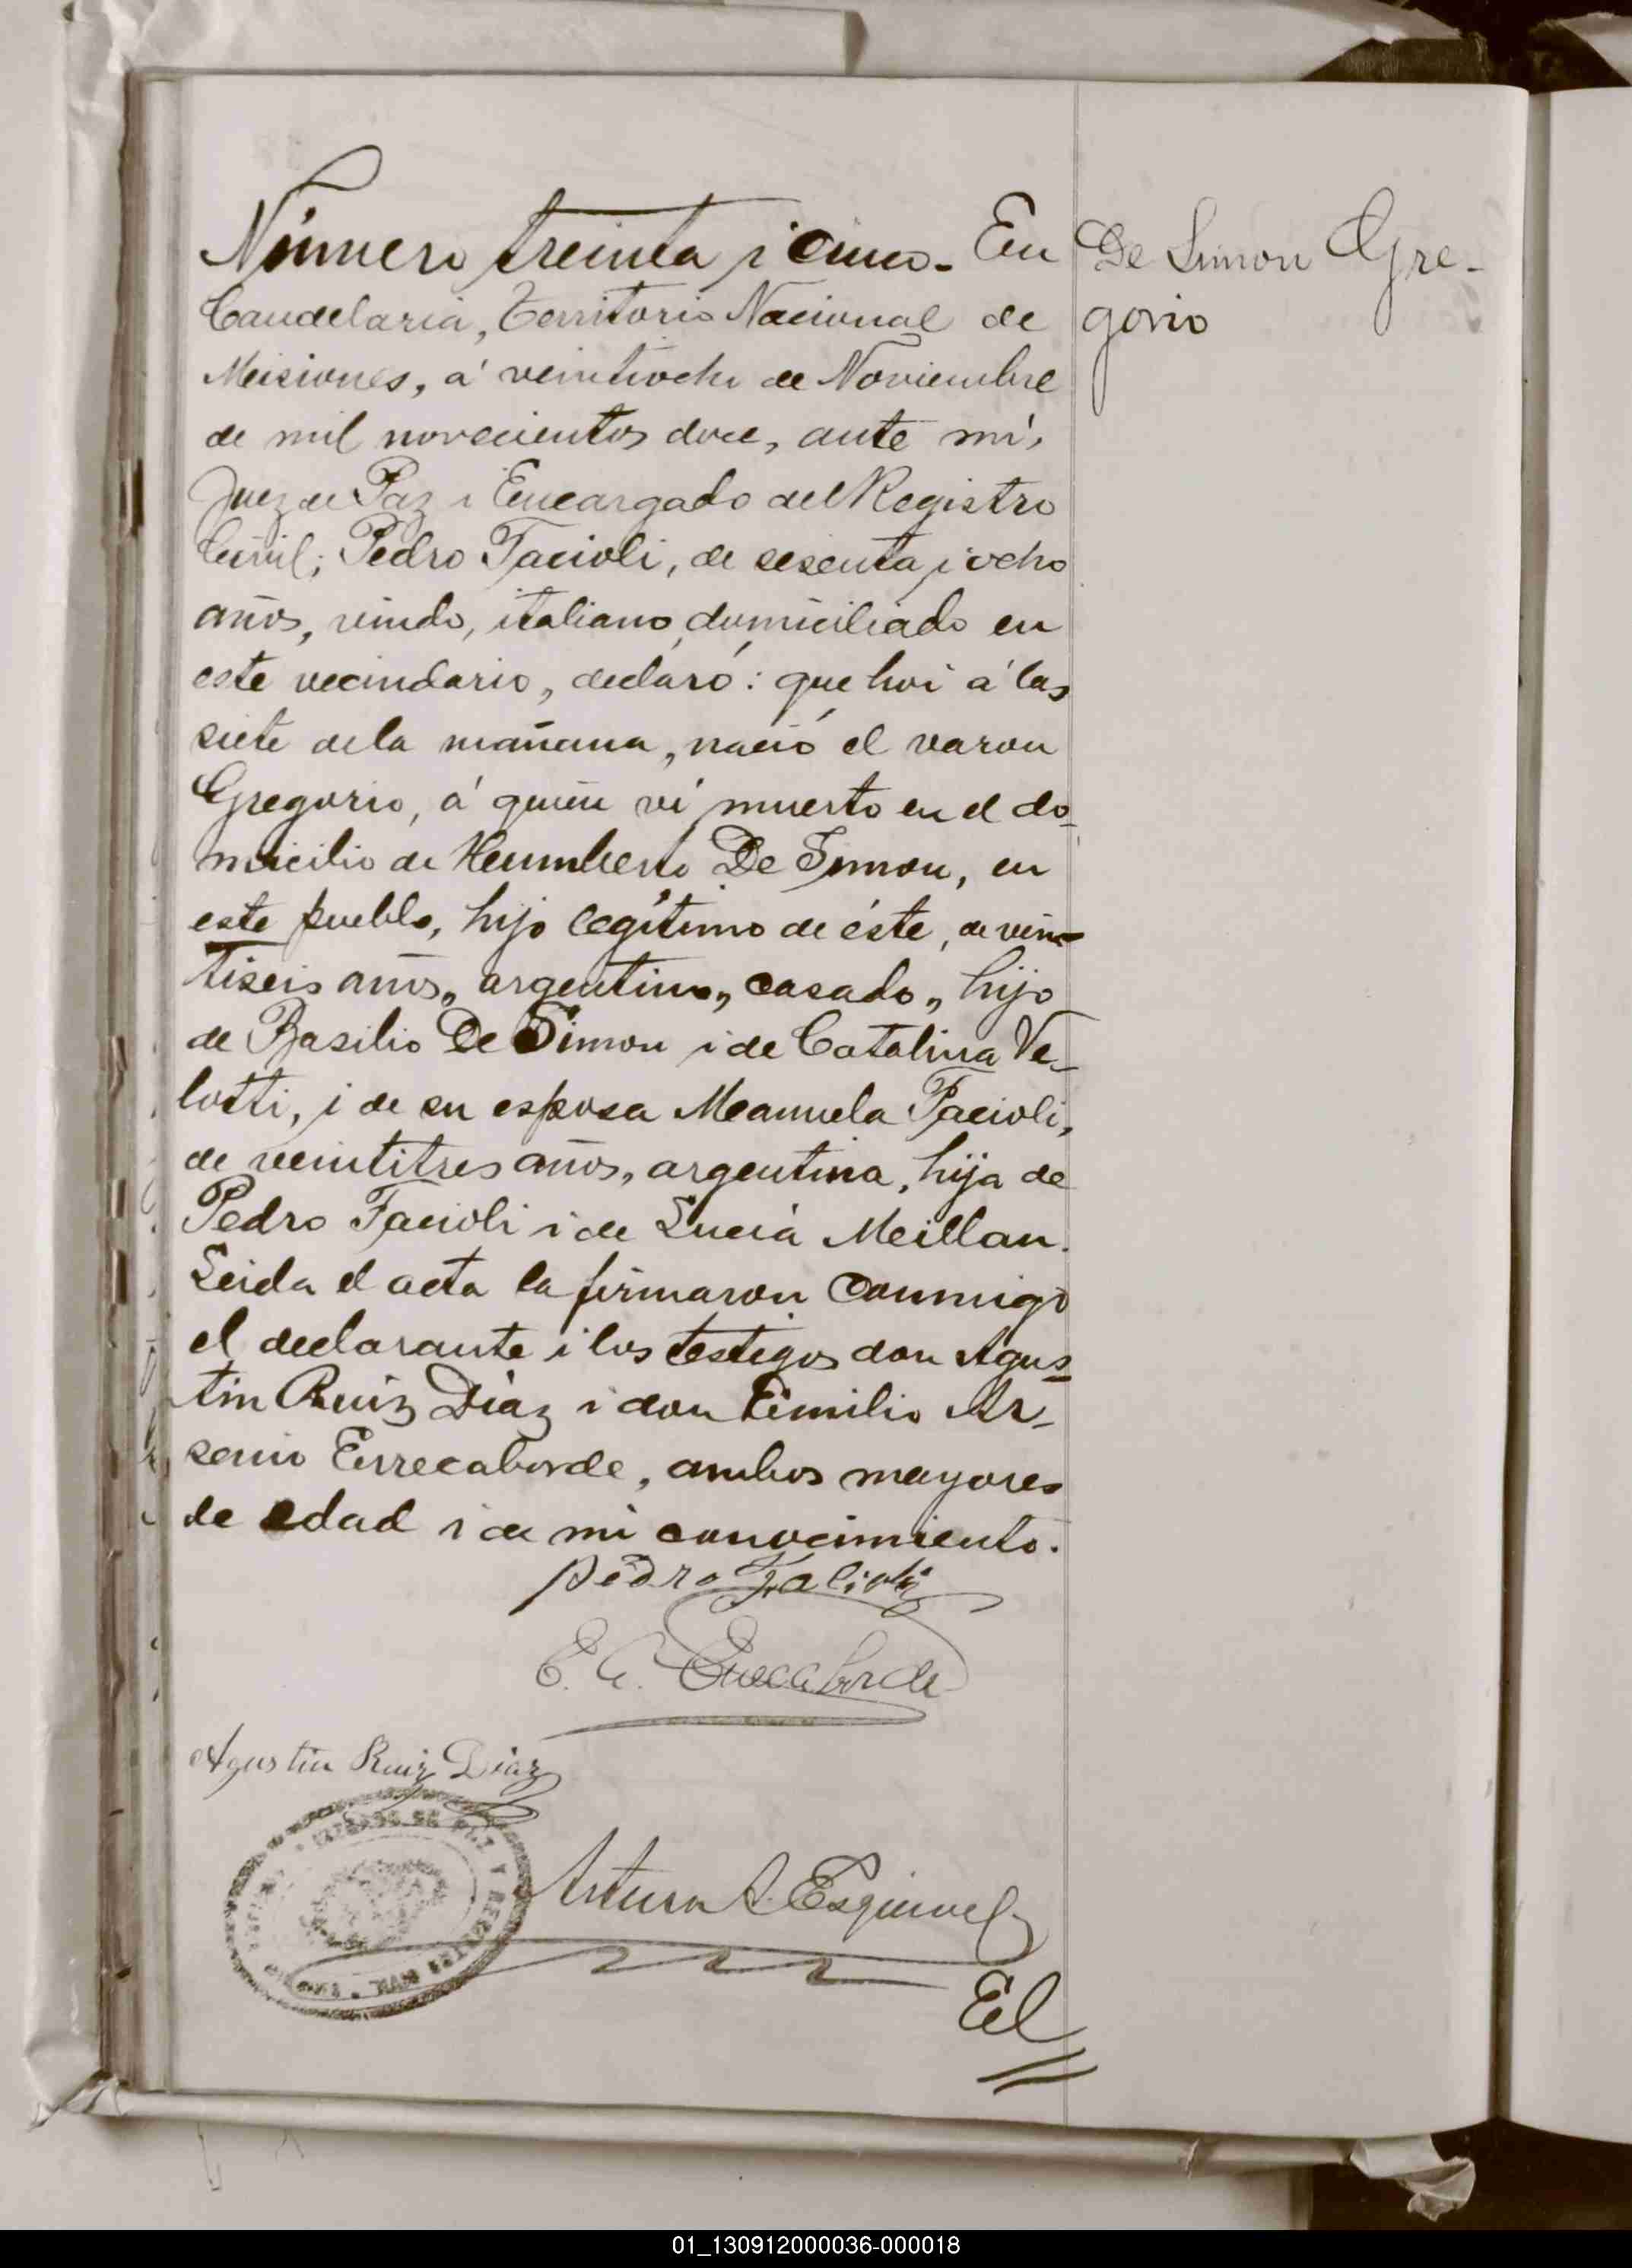 Número treinta i cinco. En
Candelaria, Territorio Nacional de
Misiones, á veintiocho de Noviembre
de mil novecientos doce, ante mí,
Juez de Paz i Encargado del Registro
Civil; Pedro Facioli, de sesenta i ocho
años, viudo, italiano, domiciliado en
este vecindario, declaró: que hoi á las
siete de la mañana, nació el varon
Gregorio, á quién ví muerto en el do-
micilio de Humberto De Simon, en
este pueblo, hijo legítimo de éste, de vein-
tiseis años, argentino, casado, hijo
de Basilio De Simon i de Catalina Ve-
lotti, i de su esposa Manuela Facioli,
de veintitres años, argentina, hija de
Pedro Facioli i de Lucía Meillan.
Leida el acta la firmaron conmigo
el declarante i los testigos don Agus-
tin Ruiz Diaz i don Emilio Ar-
senio Errecaborde, ambos mayores
de edad i de mi conocimiento.
Pedro Facioli
E. A. Errecaborde
Agustin Ruiz Diaz
Arturo A. Esquivel
El
De Simon Gre-
gorio
01_130912000036-000018